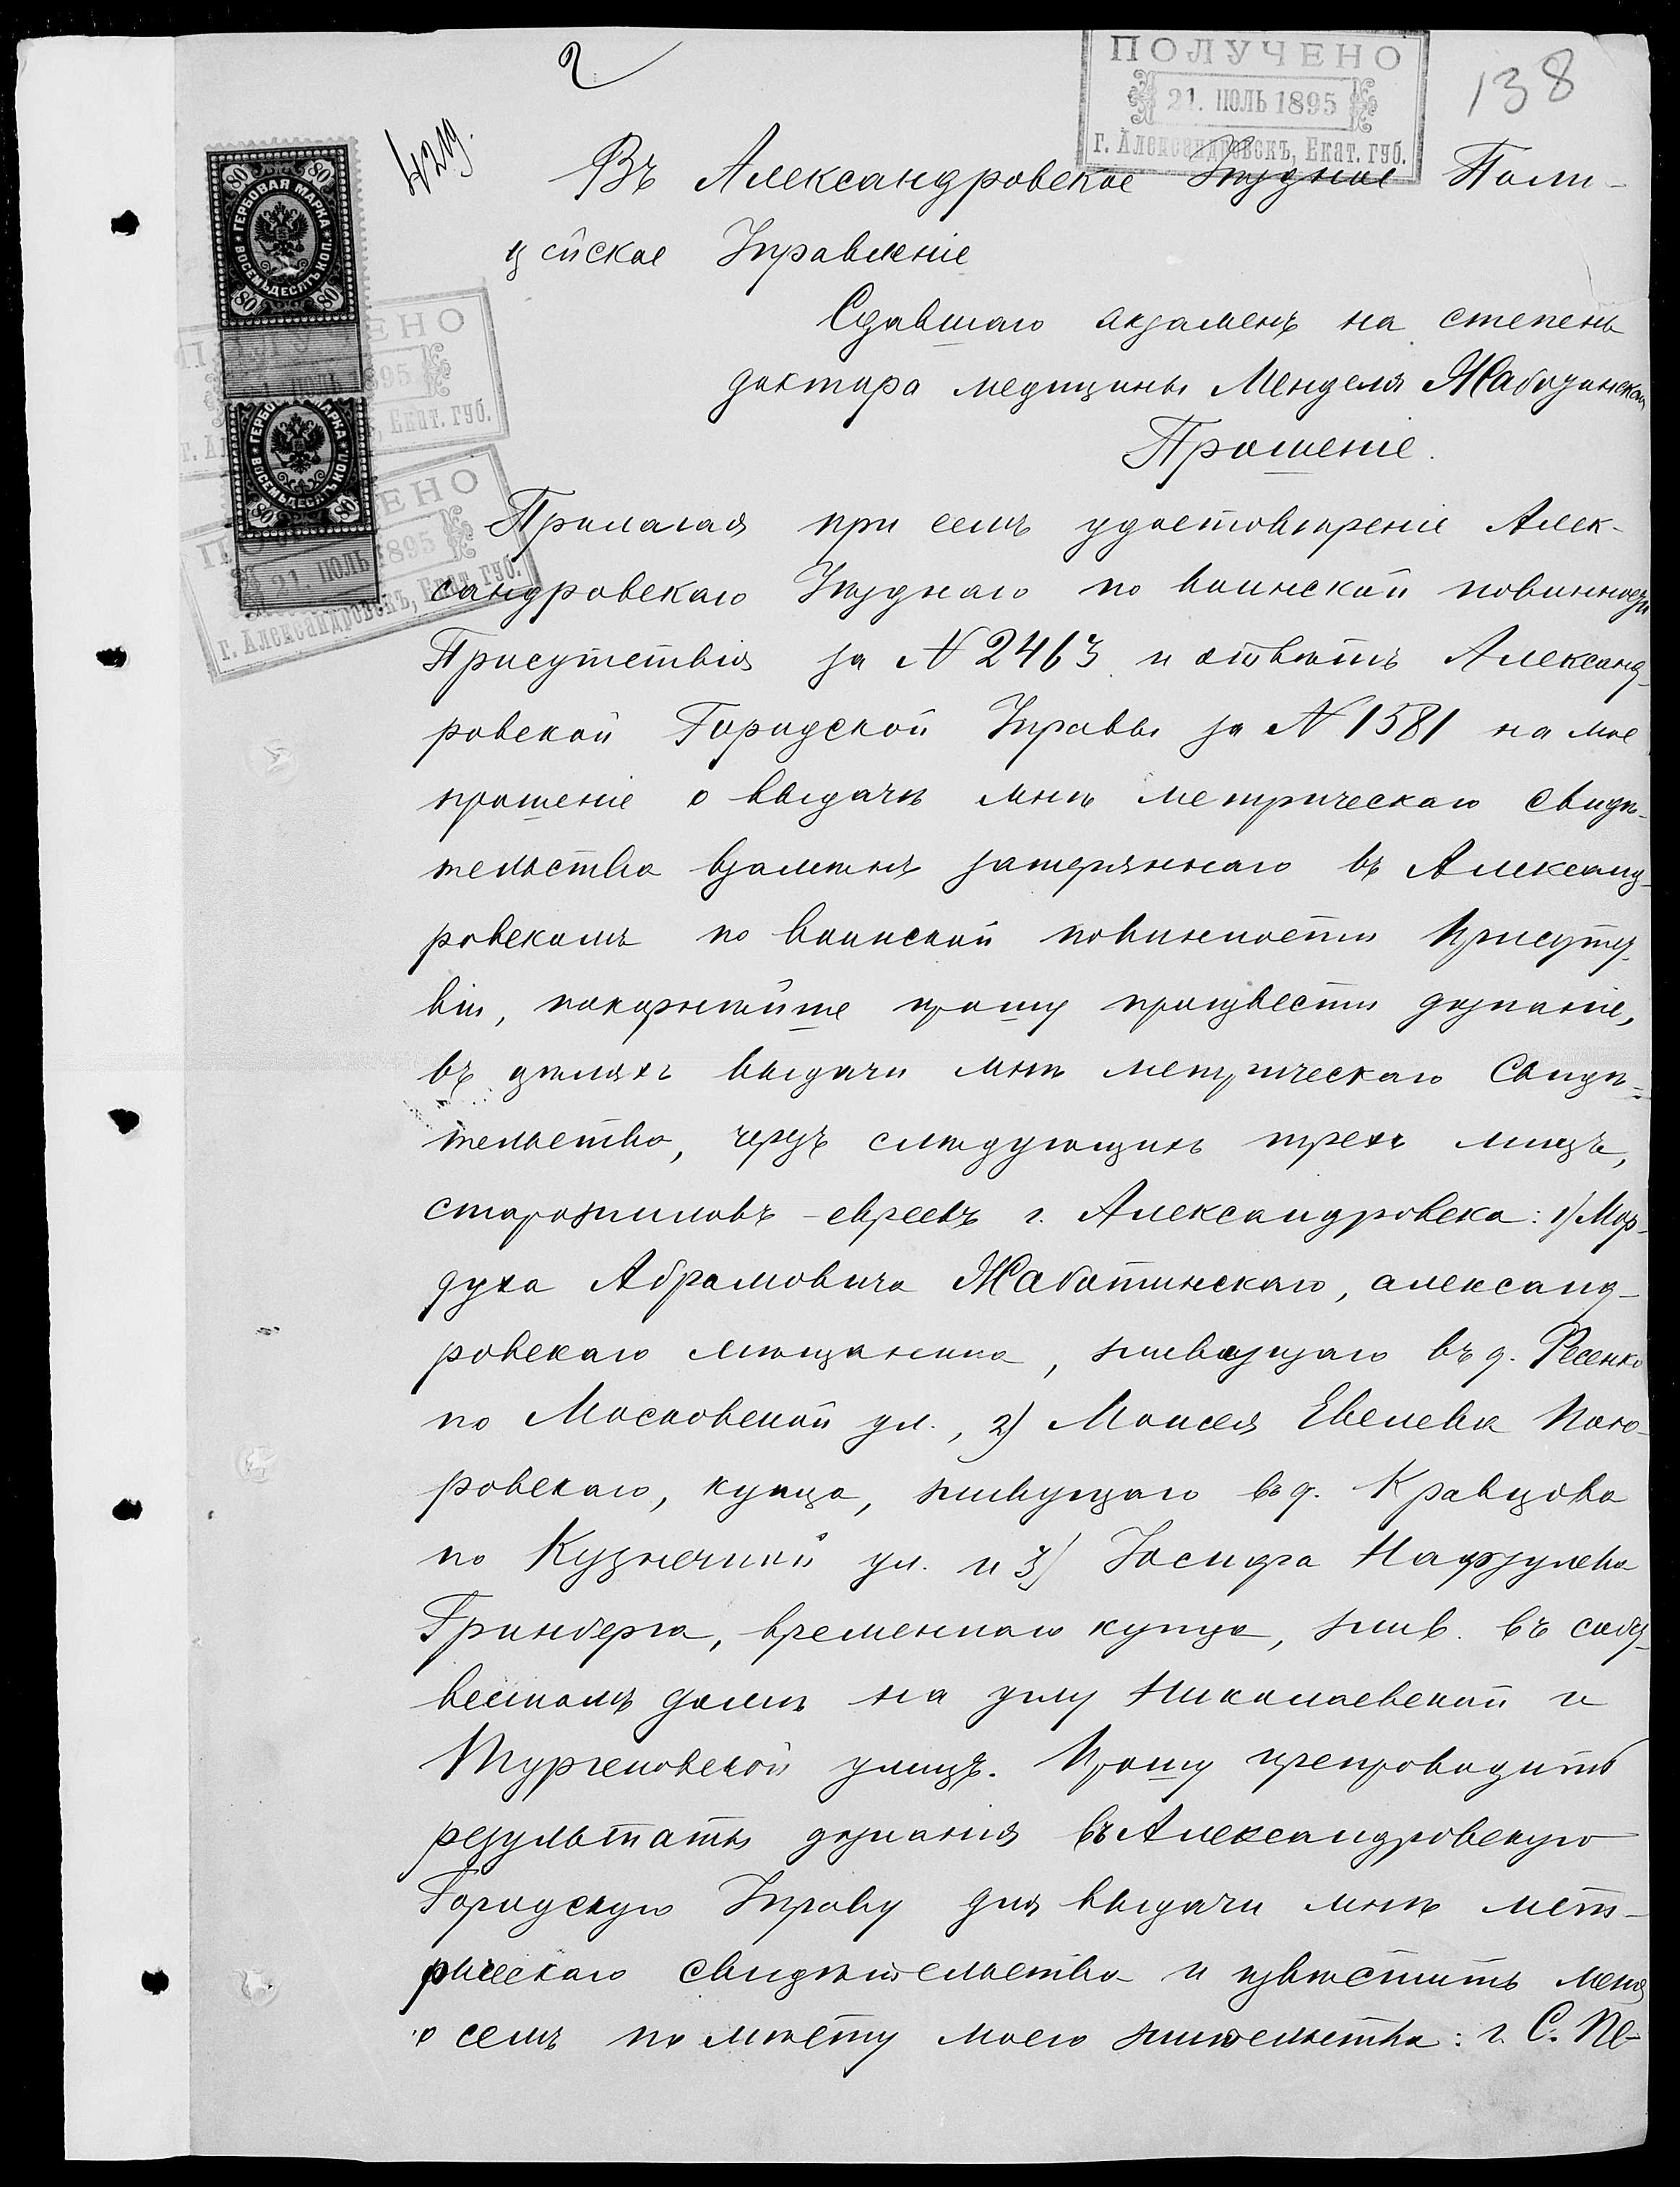 2
ПОЛУЧЕНО
21. ІЮЛЬ 1895
г. Александровскъ, Екат. губ.
138
429.
80 80
ГЕРБОВАЯ МАРКА
ВОСЕМЬДЕСЯТЪ КОП.
80 80
ГЕРБОВАЯ МАРКА
ВОСЕМЬДЕСЯТЪ КОП.
80 80
ПОЛУЧЕНО
21. ІЮЛЬ 1895
г. Александровскъ, Екат. губ.
ПОЛУЧЕНО
21. ІЮЛЬ 1895
г. Александровскъ, Екат. губ.
Въ Александровское Уѣздное Поли-
цейское Управленіе
Сдавшаго экзаменъ на степень
доктора медицины Менделя Жаботинскаго
Прошеніе.
Прилагая при семъ удостовѣреніе Алек-
сандровскаго Уѣзднаго по воинской повинности
Присутствія за № 2463 и отвѣтъ Александ-
ровской Городской Управы за № 1581 на мое
прошеніе о выдачѣ мнѣ метрическаго свидѣ-
тельства взамѣнъ затеряннаго въ Александ-
ровскомъ по воинской повинности Присутст-
віи, покорнѣйше прошу произвести дознаніе,
въ цѣляхъ выдачи мнѣ метрическаго свидѣ-
тельства, черезъ слѣдующихъ трехъ лицъ,
старожиловъ-евреевъ г. Александровска: 1) Мор-
духа Абрамовича Жаботинскаго, александ-
ровскаго мѣщанина, живущаго въ д. Фесенко
по Московской ул., 2) Моисея Евелева Пого-
ровскаго, купца, живущаго въ д. Кравцова
по Кузнечной ул. и 3) Іосифа
Гринберга, временнаго купца, жив. въ собст-
венномъ домѣ на углу Николаевской и
Тургеновской улицъ. Прошу препроводить
результаты дознанія въ Александровскую
Городскую Управу для выдачи мнѣ мет-
рическаго свидѣтельства и извѣстить меня
о семъ по мѣсту моего жительства: г. С. Пе-